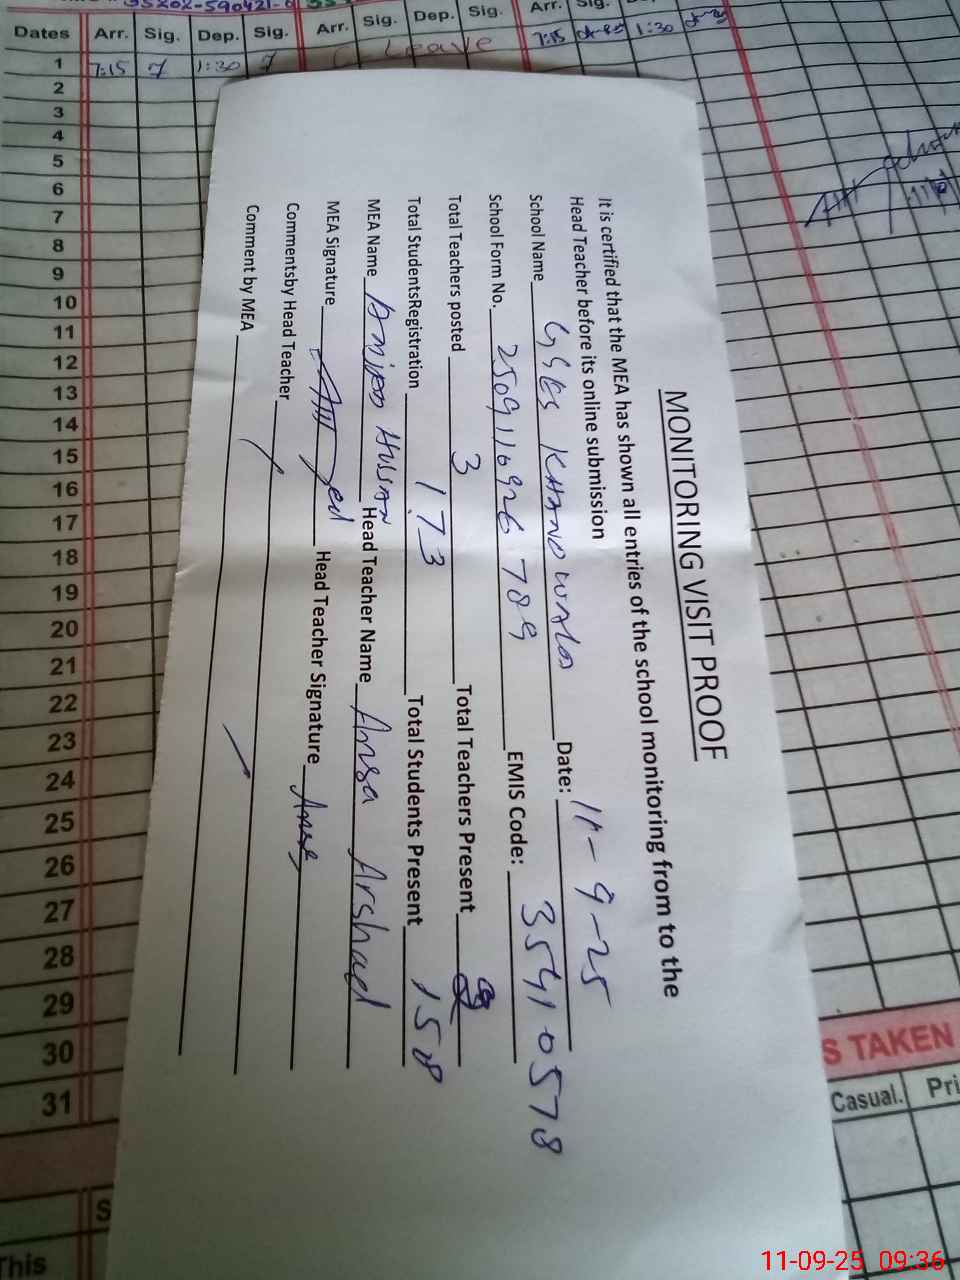 Dates Arr. Sig. Dep. Sig. Arr. Sig. Dep. Sig. Arr. Sig.
1 7:15 1:30 Leave 7:15 1:30
2
3
4
5
6
7
8
9
10
11
12
13
14
15
16
17
18
19
20
21
22
23
24
25
26
27
28
29
30
31
MONITORING VISIT PROOF
It is certified that the MEA has shown all entries of the school monitoring from to the
Head Teacher before its online submission
School Name GGES KHANO WALA Date: 11-9-25
School Form No. 2509110926789 EMIS Code: 35410578
Total Teachers posted 3 Total Teachers Present
Total StudentsRegistration 173 Total Students Present 158
MEA Name Husan Head Teacher Name Ansa Arshad
MEA Signature Head Teacher Signature Ansa
Commentsby Head Teacher
Comment by MEA
S TAKEN
Casual. Pri
This
11-09-25 09:36